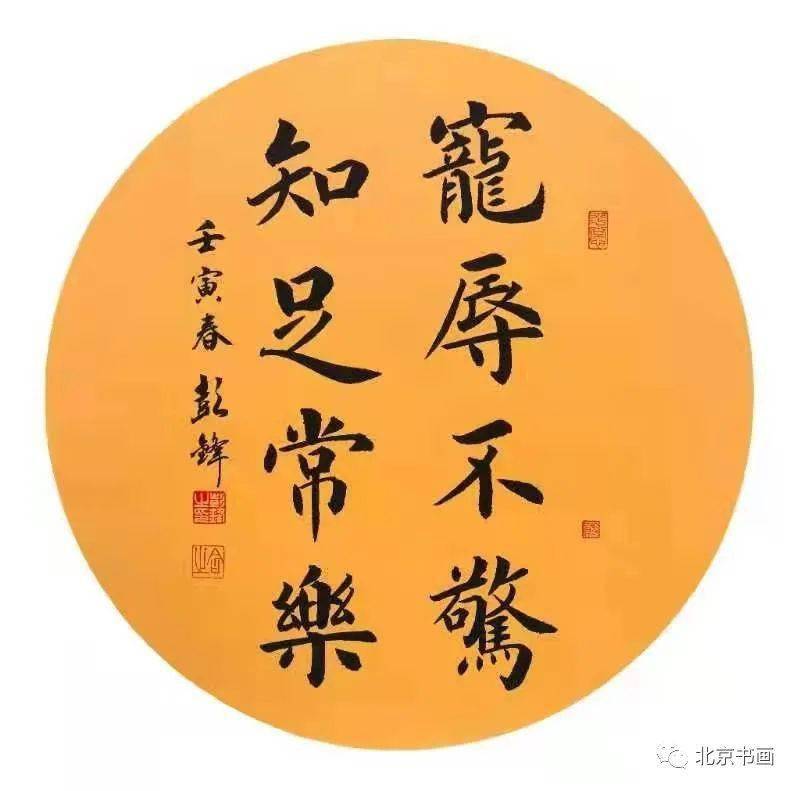 寵辱不驚
知足常樂
壬寅春 彭鋒
北京书画